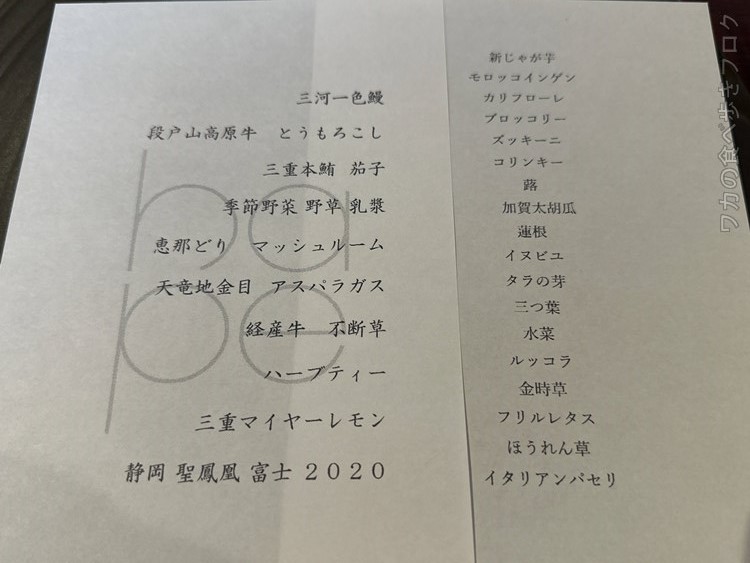 三河一色鰻
段戸山高原牛　とうもろこし
三重本鮪　茄子
季節野菜 野草 乳漿
恵那どり　マッシュルーム
天竜地金目　アスパラガス
経産牛　不断草
ハーブティー
三重マイヤーレモン
静岡 聖鳳凰 富士 ２０２０
hape
新じゃが芋
モロッコインゲン
カリフローレ
ブロッコリー
ズッキーニ
コリンキー
蕗
加賀太胡瓜
蓮根
イヌビユ
タラの芽
三つ葉
水菜
ルッコラ
金時草
フリルレタス
ほうれん草
イタリアンパセリ
ワカの食べ歩きブログ